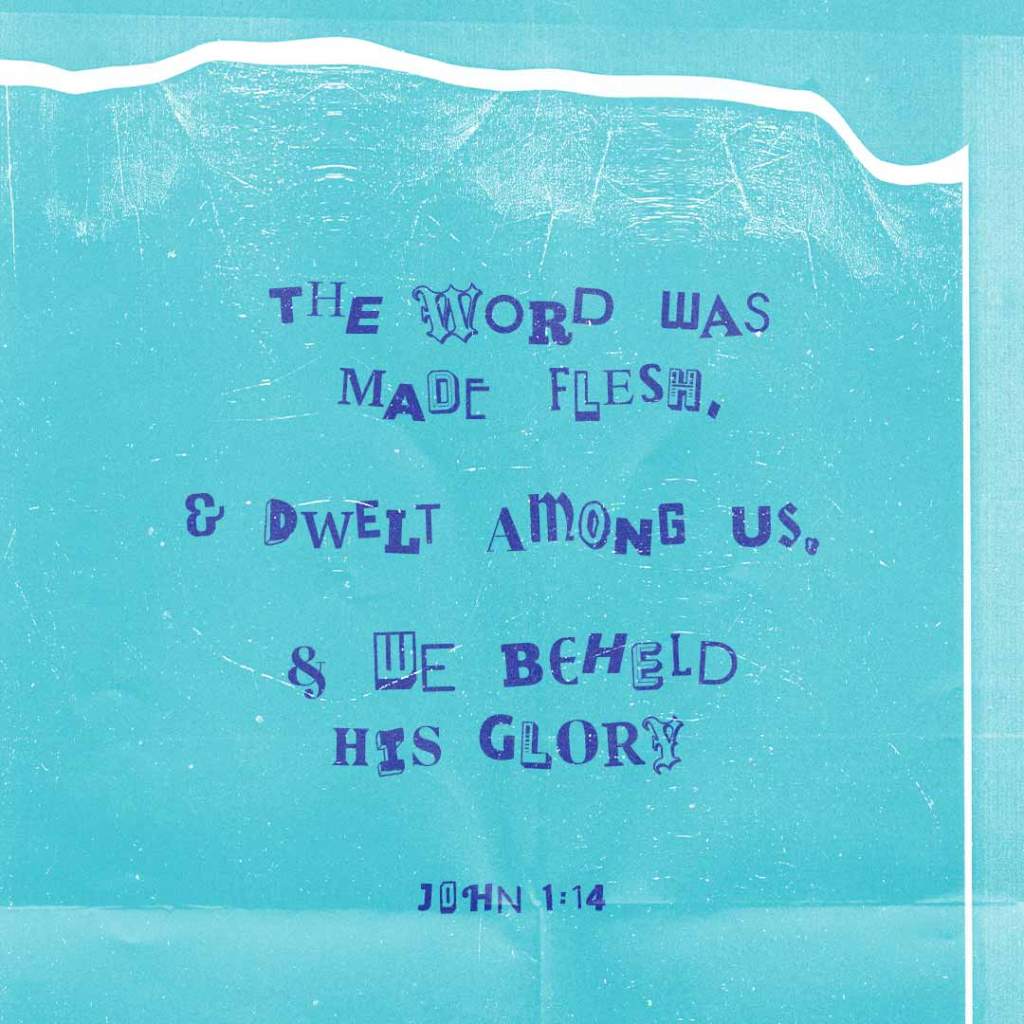 THE WORD WAS
MADE FLESH,
& DWELT AMONG US,
& WE BEHELD
HIS GLORY
JOHN 1:14